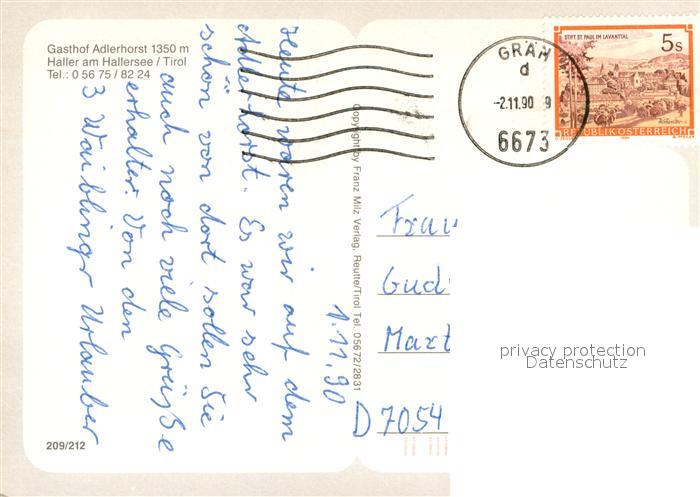 Gasthof Adlerhorst 1350 m
Haller am Hallersee / Tirol
Tel.: 0 56 75 / 82 24
1.11.90
Heute waren wir auf dem
Adlerhorst. Es war sehr
schön von dort sollen Sie
auch noch viele Grüße
erhalten. Von den
3 Waiblingr Urlauber
209/212
Copyright by Franz Milz Verlag, Reutte/Tirol Tel. 05672/2831
GRÄN
d
-2.11.90 9
6673
STIFT ST. PAUL IM LAVANTTAL
5 S
REPUBLIK ÖSTERREICH
Frau
Gud
Mart
D 7054
privacy protection
Datenschutz